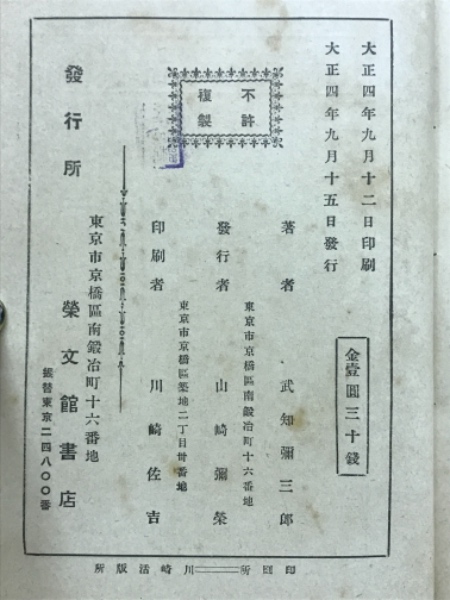 大正四年九月十二日印刷
大正四年九月十五日發行
金壹圓三十錢
不許
複製
著者 武知彌三郎
東京市京橋區南鍛冶町十六番地
發行者 山崎彌榮
東京市京橋區築地二丁目卅番地
印刷者 川崎佐吉
東京市京橋區南鍛冶町十六番地
發行所 榮文館書店
振替東京二四八〇〇番
印刷所 川崎活版所